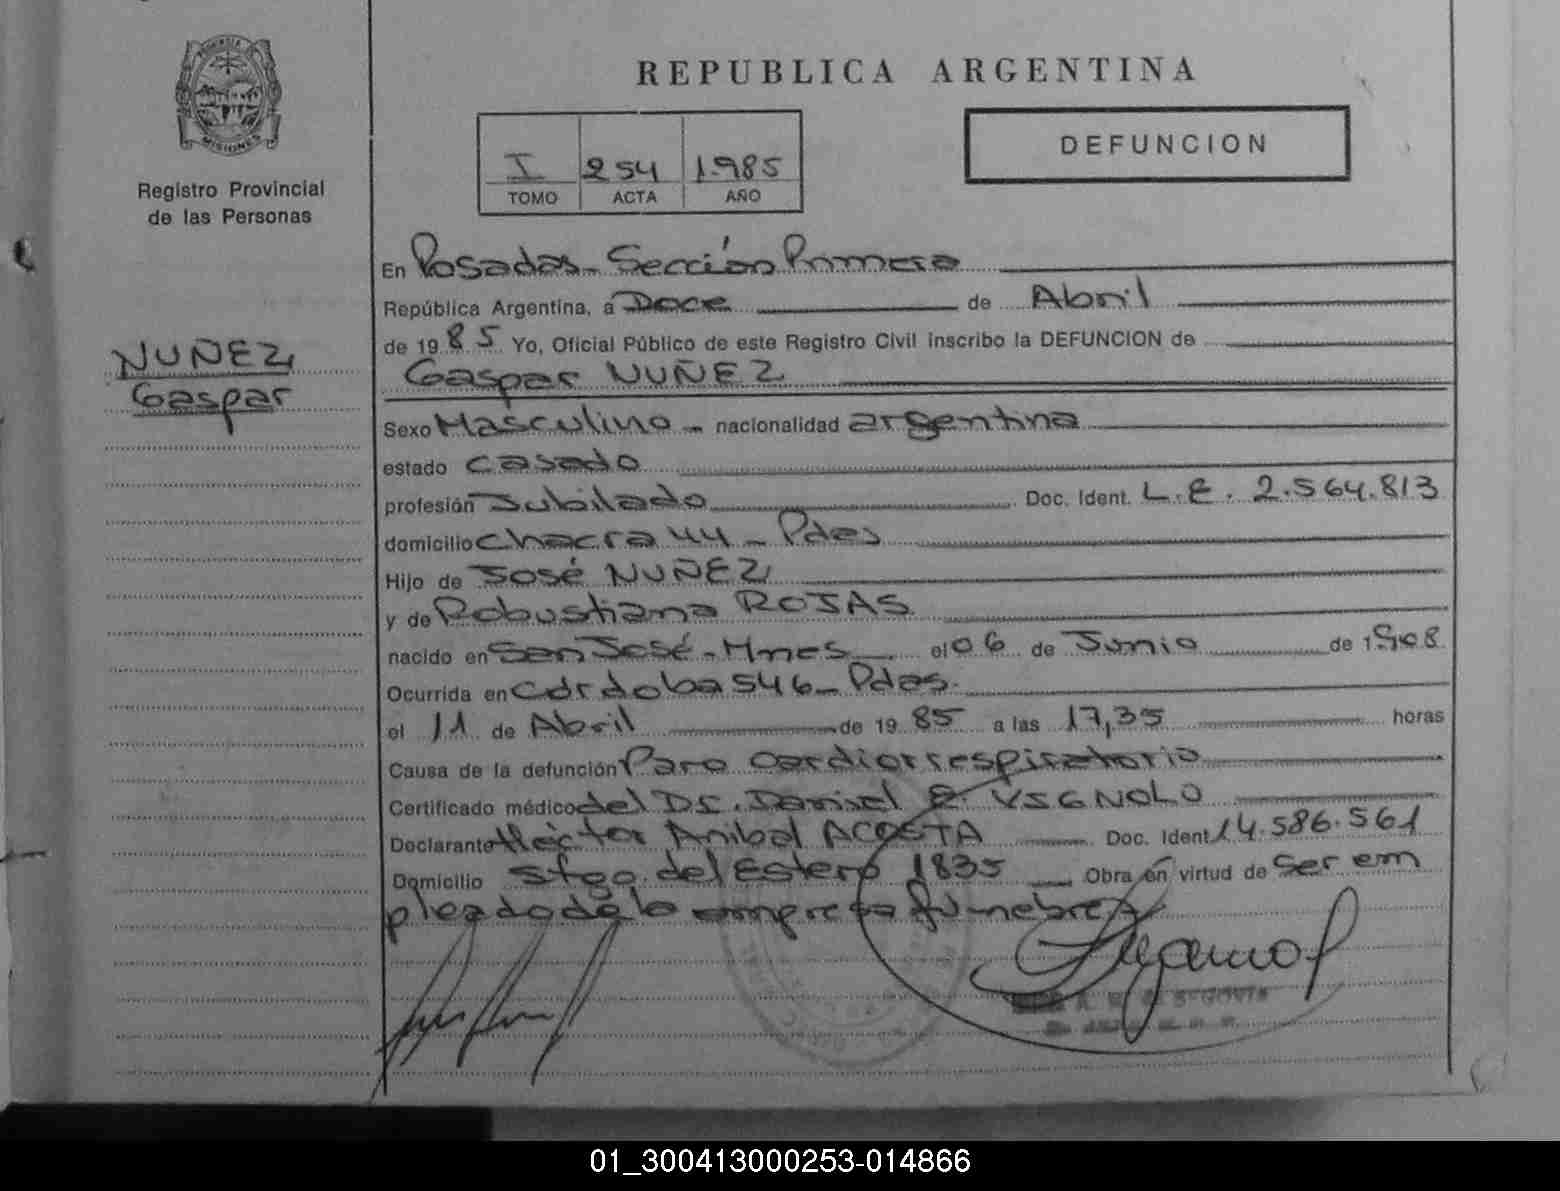 PROVINCIA DE
MISIONES
Registro Provincial
de las Personas
NUÑEZ
Gaspar
REPUBLICA ARGENTINA
I 254 1.985
TOMO ACTA AÑO
DEFUNCION
En Posadas - Sección Primera
República Argentina, a Doce de Abril
de 19 85 Yo, Oficial Público de este Registro Civil inscribo la DEFUNCION de
Gaspar NUÑEZ
Sexo Masculino - nacionalidad argentina
estado casado
profesión Jubilado Doc. Ident. L.E. 2.564.813
domicilio chacra 44 - Pdas
Hijo de José NUÑEZ
y de Robustiana ROJAS
nacido en San José - Mnes el 06 de Junio de 1908
Ocurrida en Córdoba 546 - Pdas.
el 11 de Abril de 19 85 a las 17,35 horas
Causa de la defunción Paro cardiorrespiratorio
Certificado médico del Dr. Daniel E. VIGNOLO
Declarante Héctor Anibal ACOSTA Doc. Ident 14.586.561
Domicilio Stgo. del Estero 1835 Obra en virtud de ser em
pleado de la empresa fúnebre
SEGOVIA
01_300413000253-014866